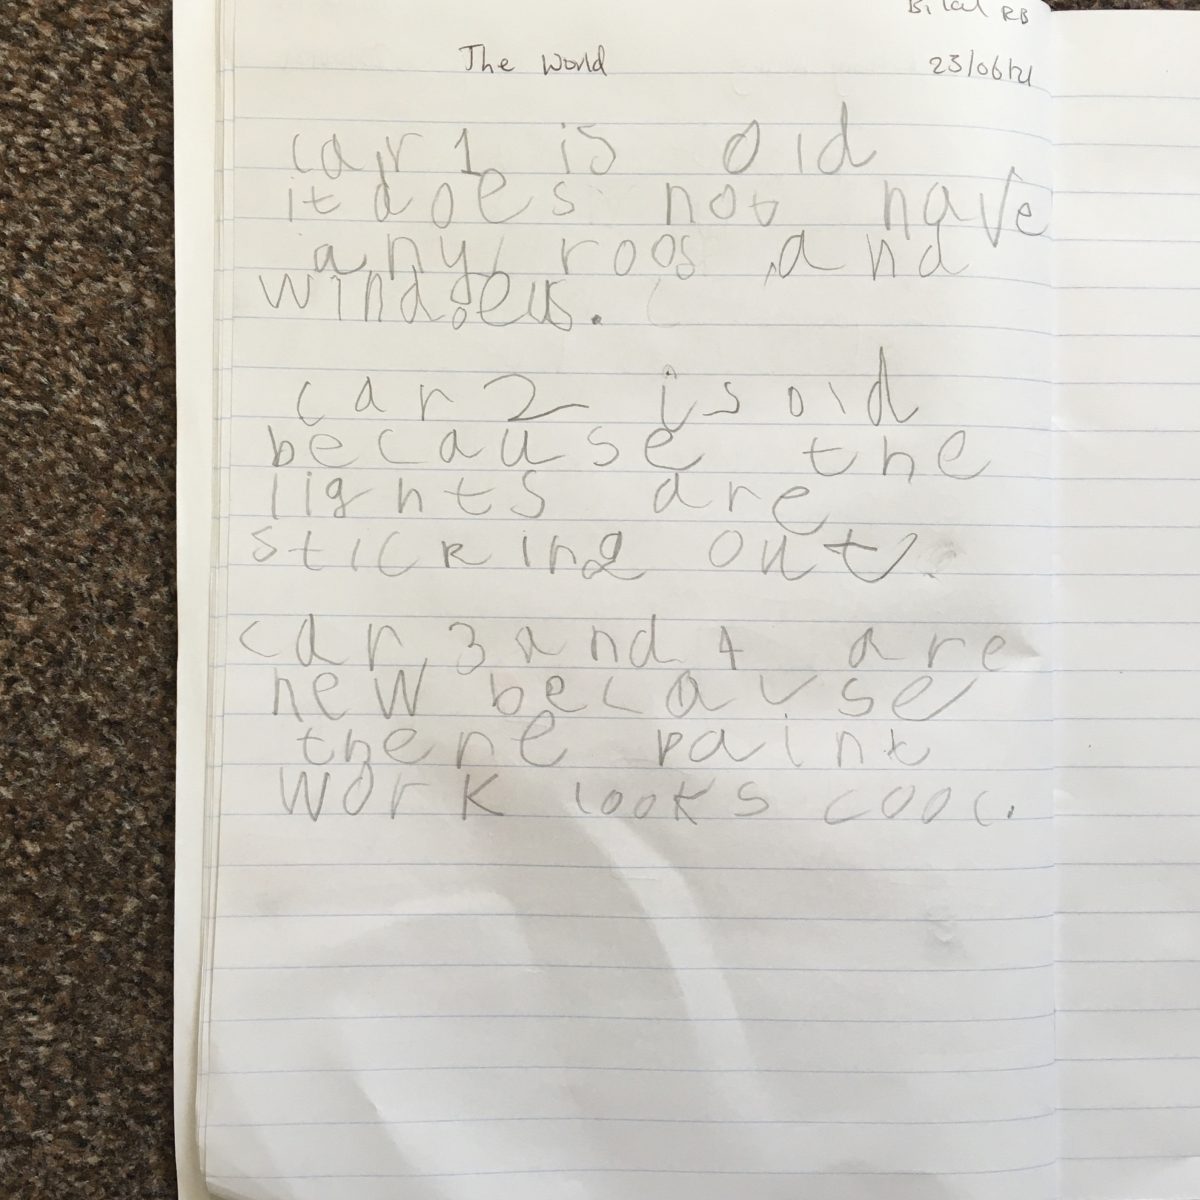 Bilal RB
The World
23/06/21
car 1 is old
it does not have
any roos and
windows.
car 2 is old
because the
lights are
sticking out.
car 3 and 4 are
new because
there paint
work looks cool.